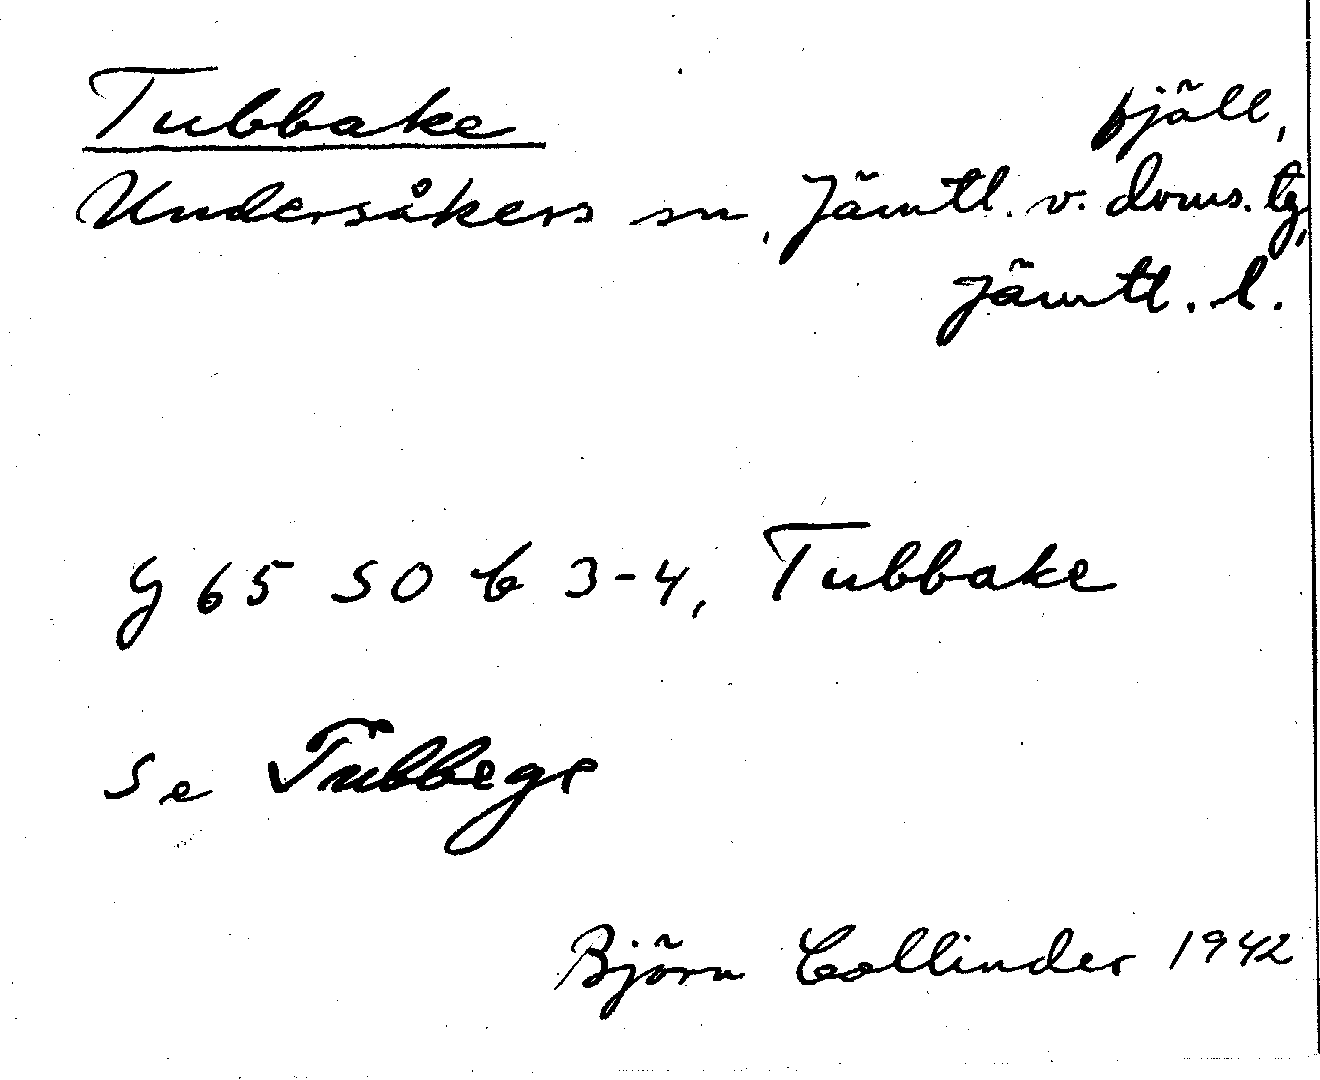 Tubbake fjäll,
Undersåkers sn, Jämtl. v. doms. tg,
Jämtl. l.
G 65 SO b 3-4, Tubbake
Se Tubbege
Björn Collinder 1942